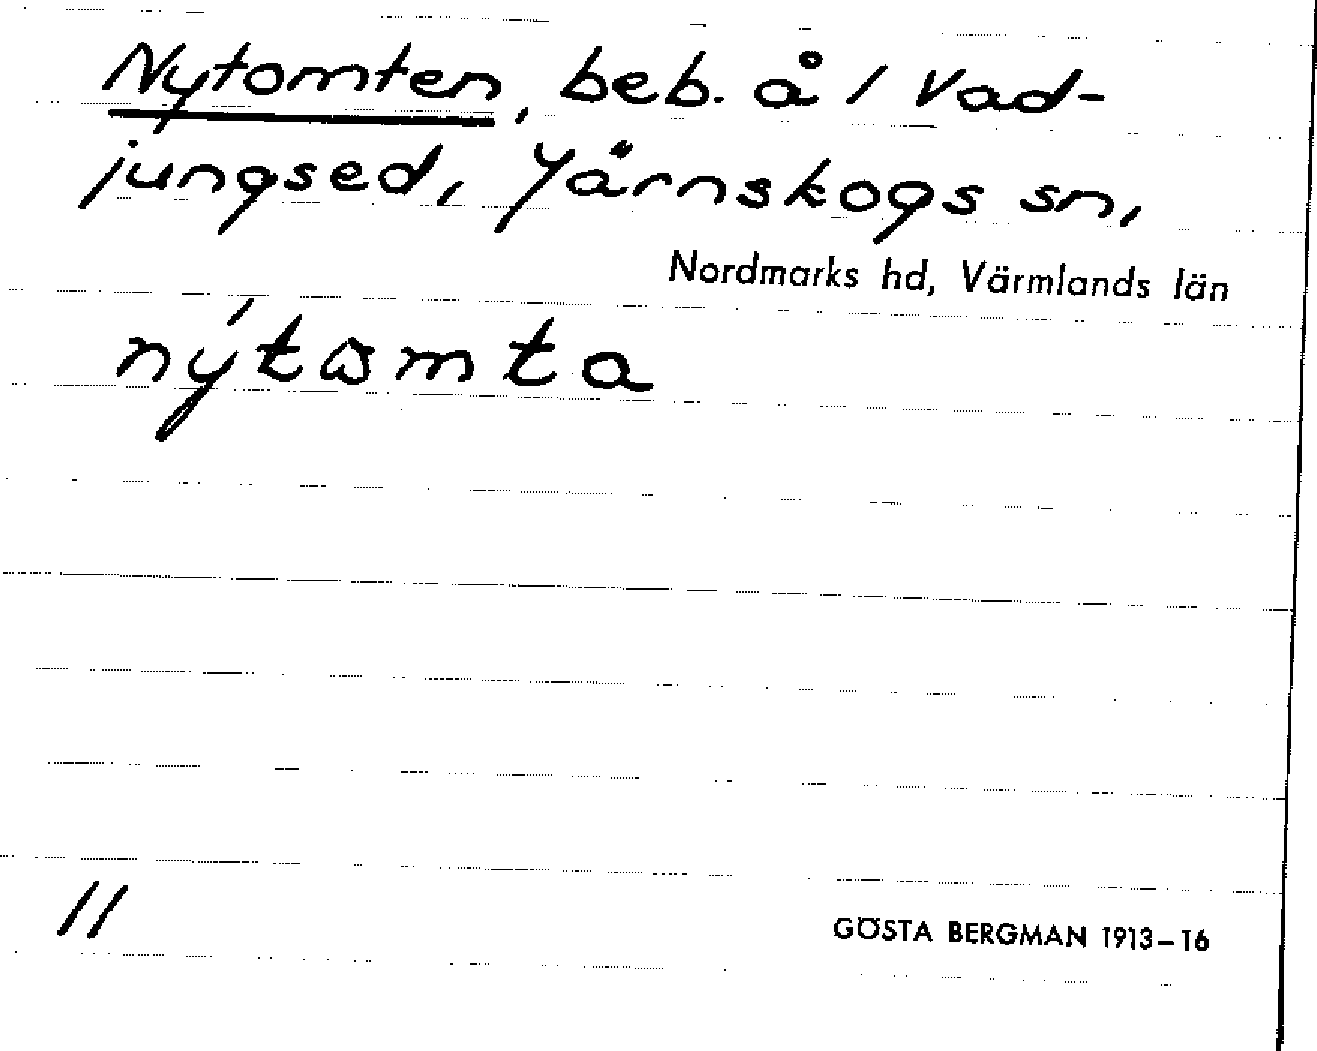 Nytomten, beb. å 1 Vad-
jungsed, Järnskogs sn,
Nordmarks hd, Värmlands län
nýtɷmta
11
GÖSTA BERGMAN 1913–16